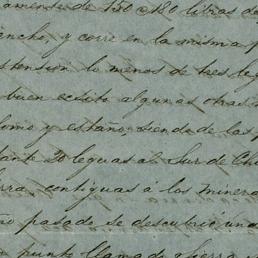 amente de 150 a 180 libras de
ancho, y corre en la misma
estension lo menos de tres leg
buen ecsito algunas otras
lomo y estaño, siendo de las
tante 20 leguas al Sur de Ch
rra, contiguas a los minera
ño pasado se descubrió un
punto llamado Sierra